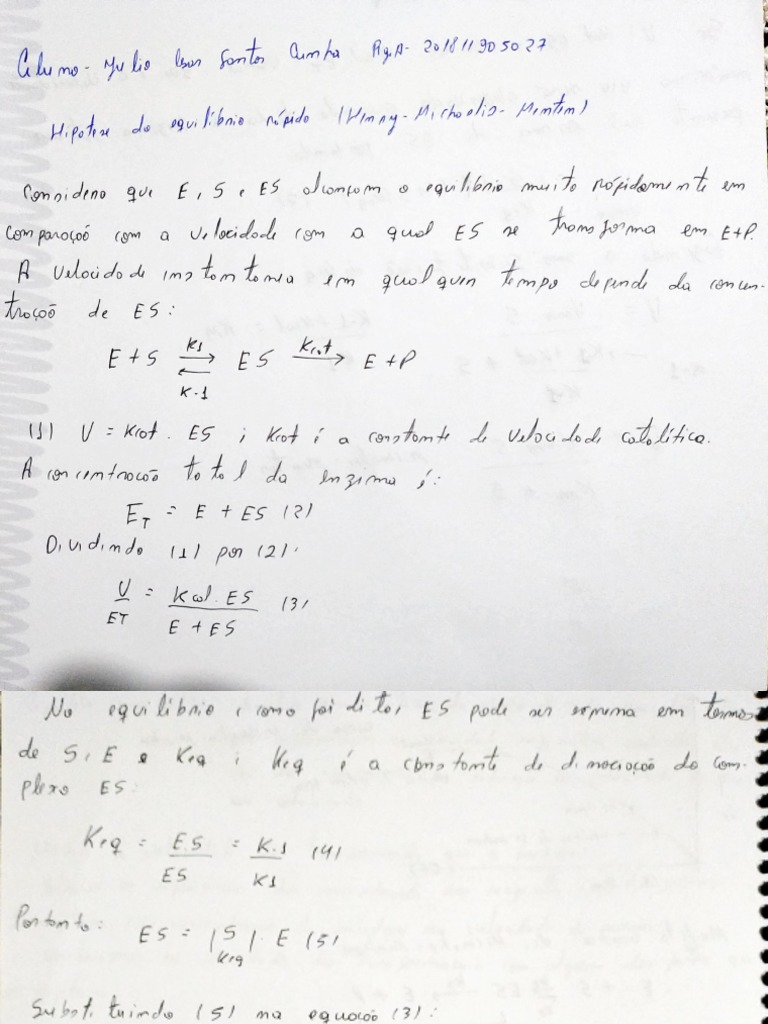 Aluno - Julio Cesar Santos Cunha RgA- 201811905027
Hipotese do equilíbrio rápido (Henry-Michaelis-Mentem)
Considero que E, S e ES alcançam o equilíbrio muito rápidamente em
comparação com a velocidade com a qual ES se transforma em E+P.
A velocidade instantanea em qualquer tempo depende da concen-
tração de ES:
E + S ⇌ ES → E + P
K1 Kcat
K-1
(1) V = Kcat . ES ; Kcat é a constante de velocidade catalítica.
A concentração total da enzima é:
ET = E + ES (2)
Dividindo (1) por (2).
V/ET = Kcat . ES / E + ES (3)
No equilíbrio, como foi dito, ES pode ser expressa em termos
de S, E e Keq ; Keq é a constante de dissociação do com-
plexo ES:
Keq = E.S / ES = K-1 / K1 (4)
Portanto: ES = (S / Keq) . E (5)
Substituindo (5) na equação (3):